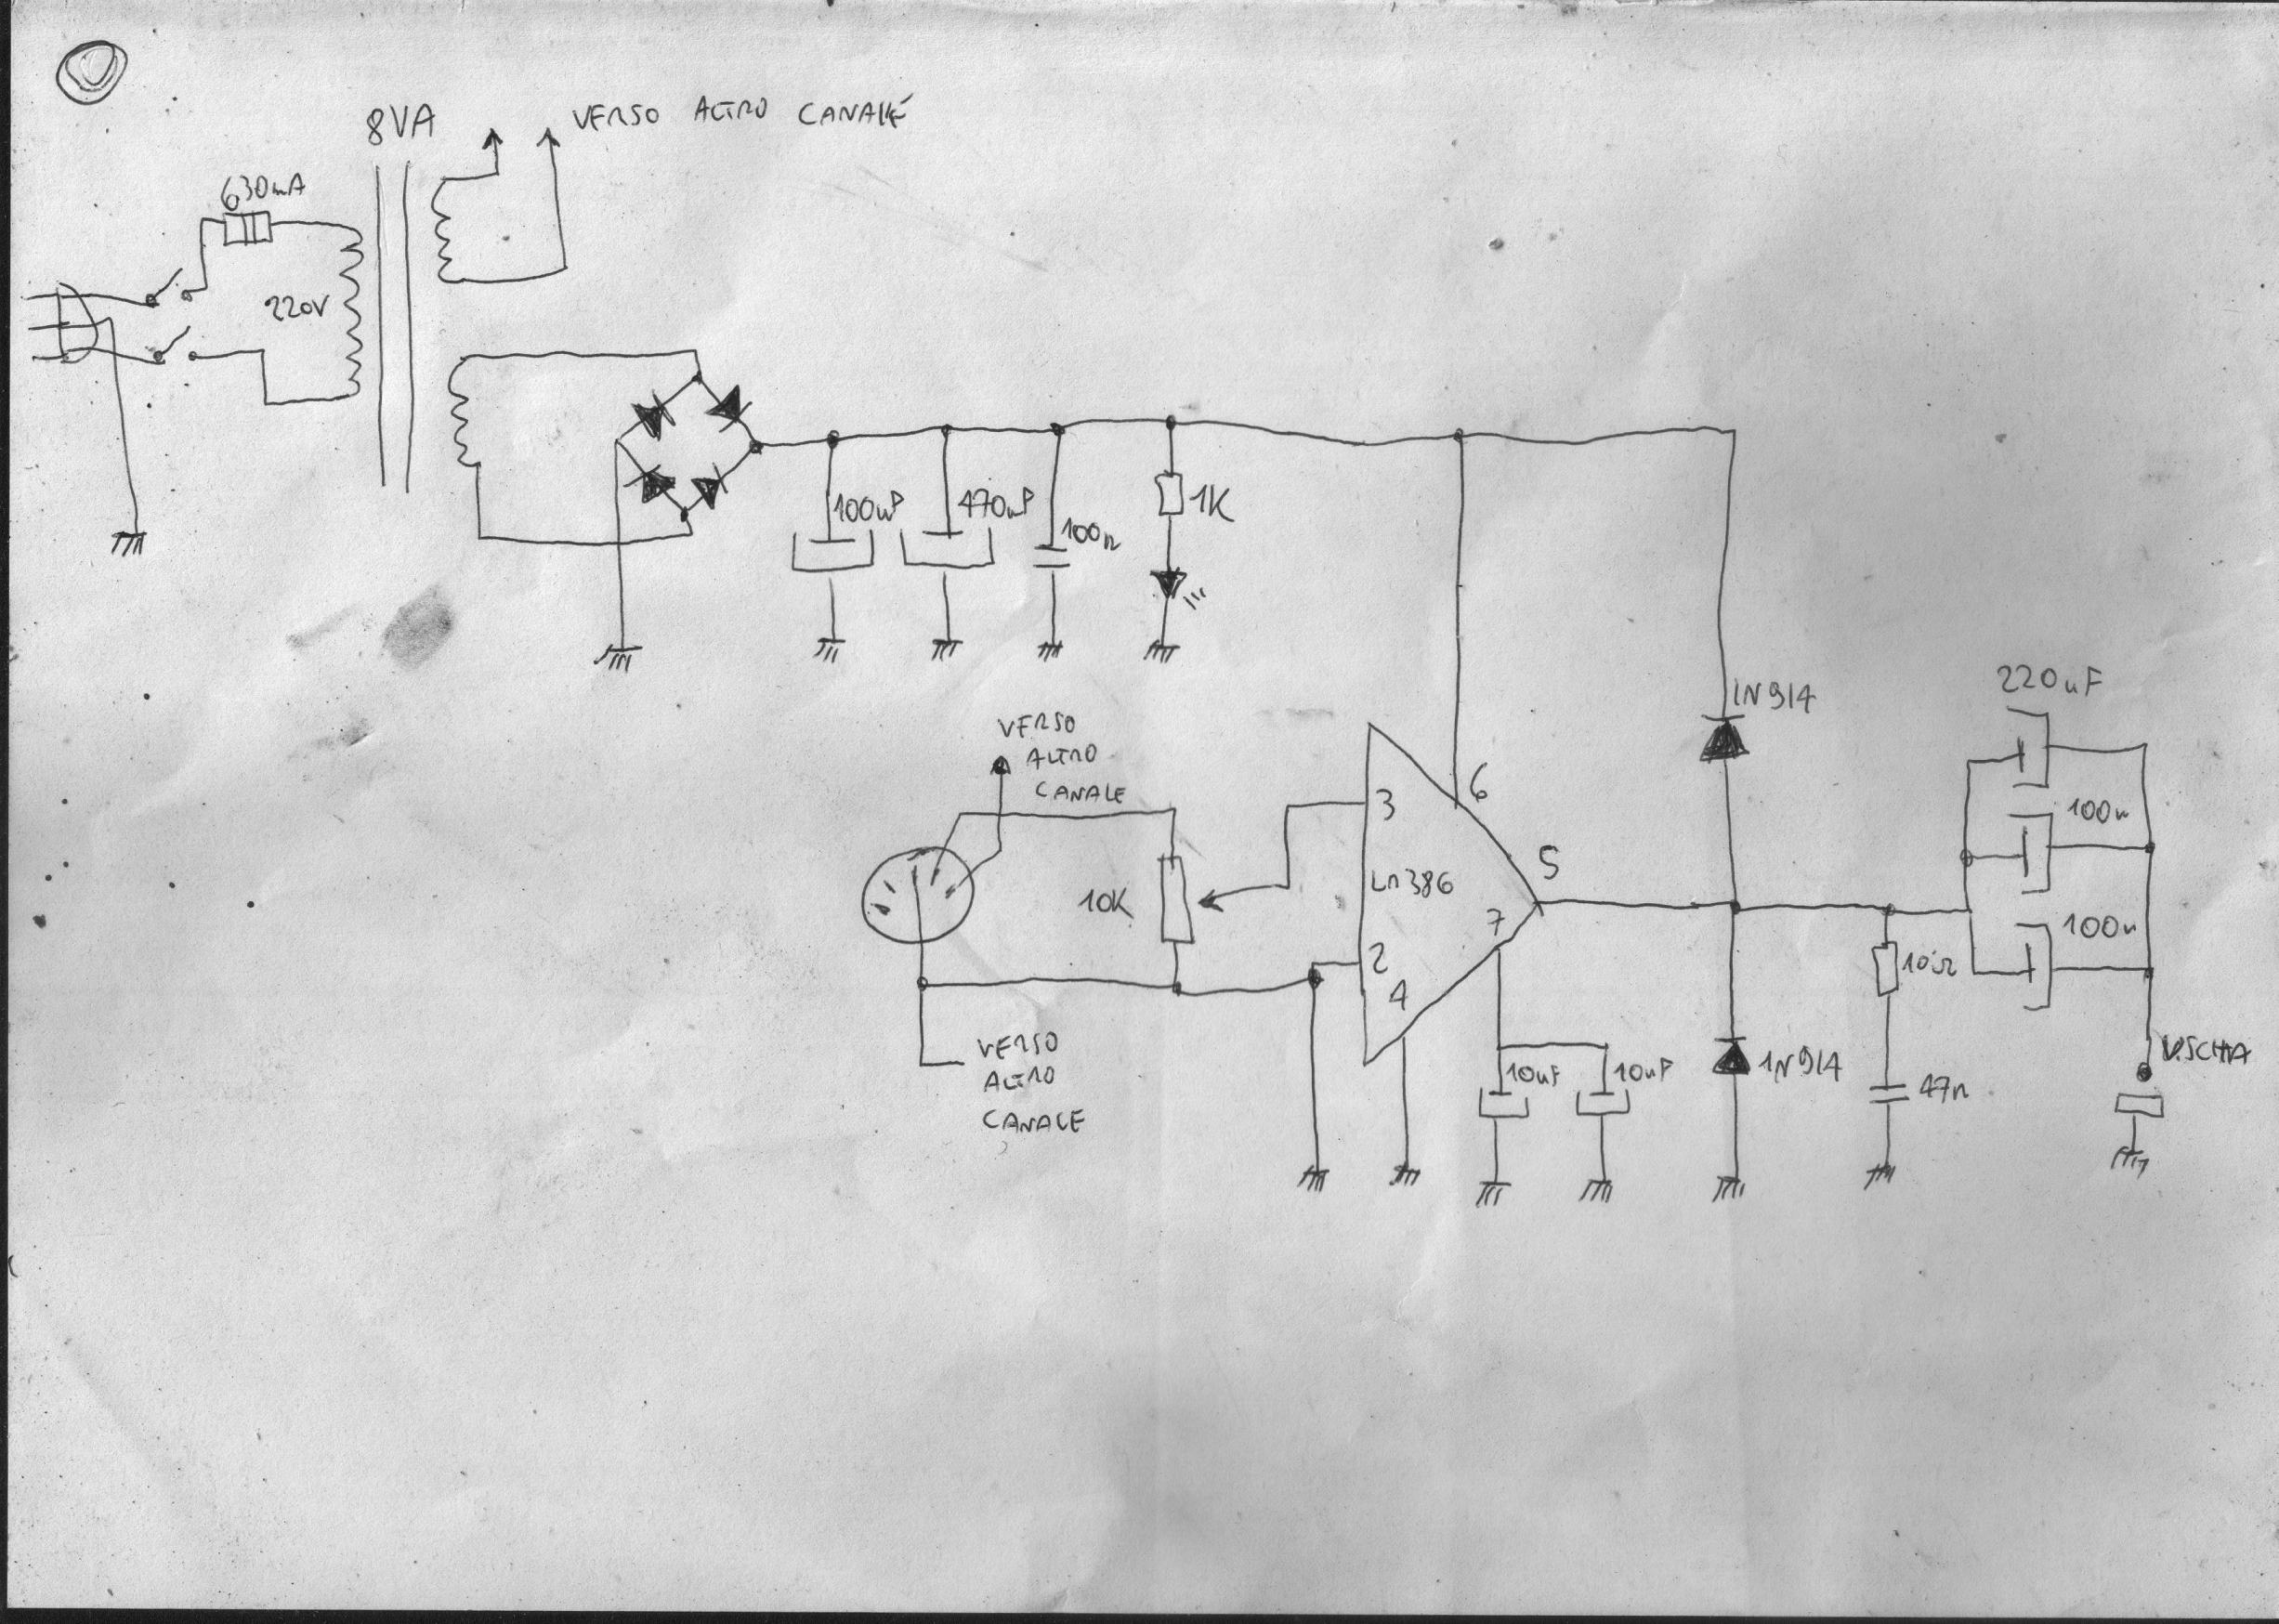 8VA
VERSO ALTRO CANALE
630mA
220V
100uF
470uF
100n
1K
1N914
220uF
VERSO
ALTRO
CANALE
100u
3
6
5
10K
LM386
7
2
4
100u
10Ω
VERSO
ALTRO
CANALE
10uF
10uF
1N914
47n
USCITA